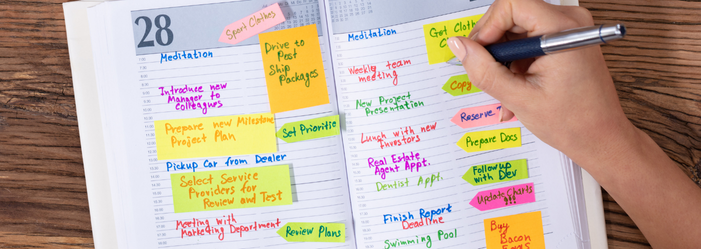 28
Sport Clothes
Meditation
Drive to
Post
Ship
Packages
Introduce new
Manager to
Colleagues
Prepare new Milestone
Project Plan
Set Prioritie
Pickup Car from Dealer
Select Service
Providers for
Review and Test
Meeting with
Marketing Department
Review Plans
Meditation
Get Cloth
Weekly team
meeting
Copy
New Project
Presentation
Reserve
Lunch with new
Investors
Prepare Docs
Real Estate
Agent Appt.
Followup
with Dev
Dentist Appt.
Update Charts
!!!
Finish Report
Deadline
Buy
Bacon
Eggs
Swimming Pool